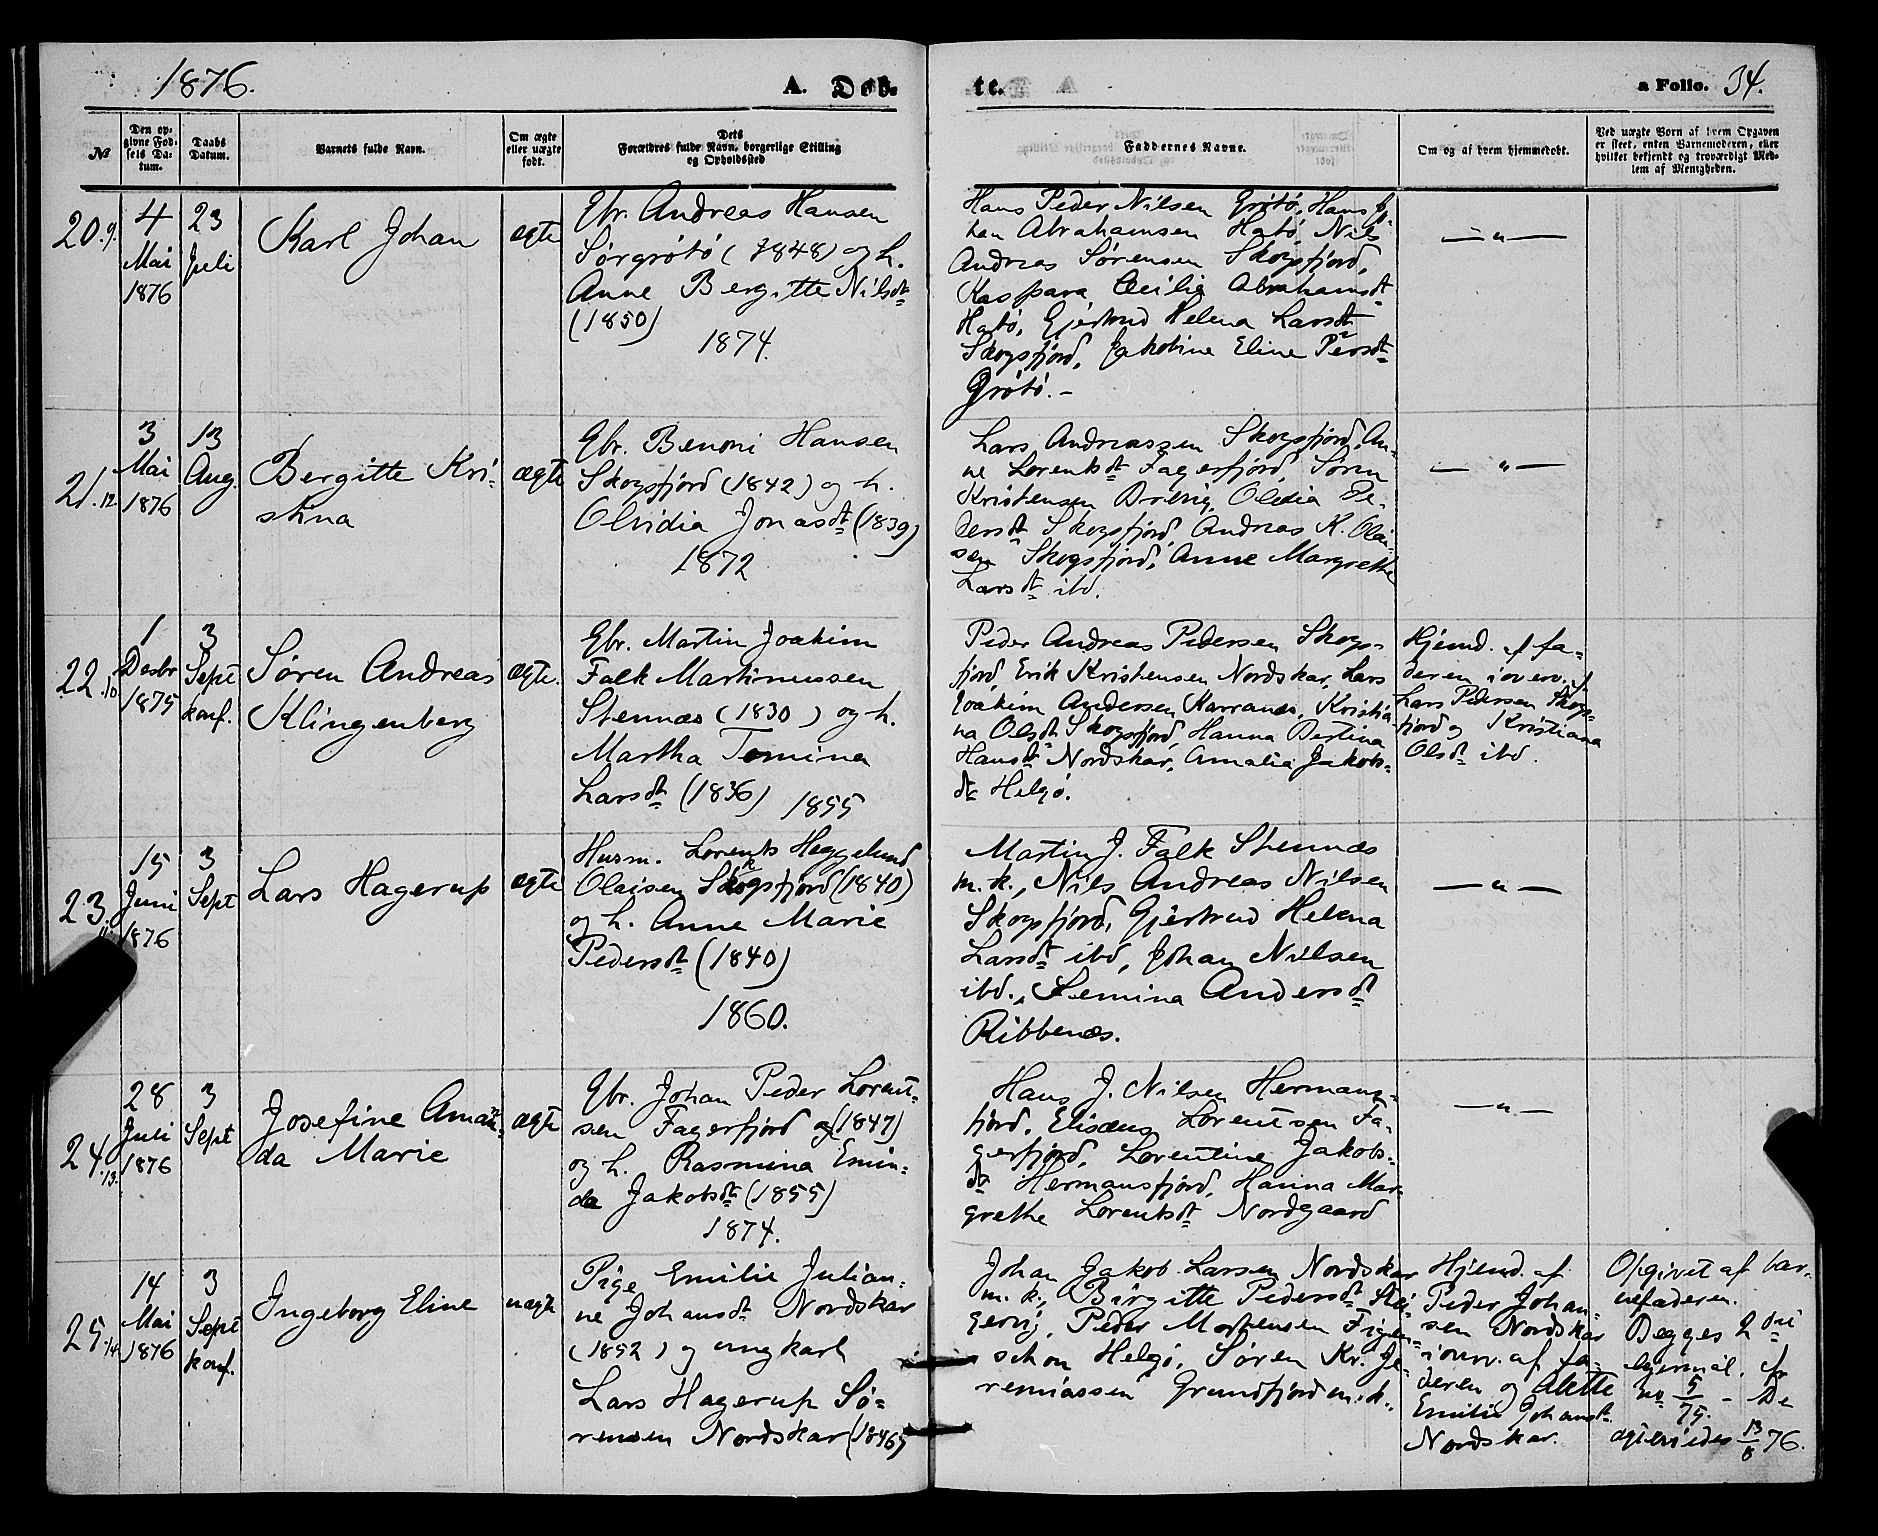 1876.
A. Døb-
te.
a Folio. 34.
No
Den op-
givne Fød-
sels Da-
tum.
Daabs
Datum.
Barnets fulde Navn.
Om ægte
eller uægte
født.
Dets
Forældres fulde Navn, borgerlige Stilling
og Opholdssted
Faddernes Navne.
Om og af hvem hjemmedøbt.
Ved uægte Børn af hvem Opgaven
er skeet, enten Barnemoderen, eller
hvilket bekjendt og troværdigt Med-
lem af Menigheden.
20.9.
4
Mai
1876
23
Juli
Karl Johan
ægte
Gbr. Andreas Hansen
Sørgrøtø (1848) og h.
Anne Bergitte Nilsdt
(1850)
1874.
Hans Peder Nilsen Grøtø, Hans
Abrahamsen Hatø, Nils
Andreas Sørensen Skogsfjord,
Kaspara Cecilia Abrahamsdt
Hatø, Gjertrud Helena Larsdt
Skogsfjord, Jakobine Eline Persdt
Grøtø.-
— " —
21.12.
3
Mai
1876
13
Aug.
Bergitte Kri-
stina
ægte
Gbr. Benoni Hansen
Skogsfjord (1842) og h.
Olvidia Jonasdt (1839)
1872
Lars Andreassen Skogsfjord, An-
ne Lorentsdt Fagerfjord, Søren
Kristensen Dreng, Olidia Pe-
dersdt Skogsfjord, Andreas K. Olai-
sen Skogsfjord, Anne Margrethe
Larsdt ibd.
— " —
22.10.
1
Desbr
1875
3
Sept
konf.
Søren Andreas
Klingenberg
ægte.
Gbr. Martin Joakim
Falk Martinussen
Stennæs (1830) og h.
Martha Tomina
Larsdt (1836) 1855
Peder Andreas Pedersen Skogs-
fjord, Erik Kristensen Nordskar, Lars
Joakim Andersen Karranæs, Kristia-
na Olsdt Skogsfjord, Hanna Bertina
Hansdt Nordskar, Amalia Jakobs-
dt Helgø.
Hjemd. af fa-
deren i overv. af
Lars Pedersen Skogs-
fjord og Kristiana
Olsdt ibd.
23.11.
15
Juni
1876
3
Sept
Lars Hagerup
ægte
Husm. Lorents Heggelund
Olaisen Skogsfjord (1840)
og h. Anne Marie
Pedersdt (1840)
1860.
Martin J. Falk Stennæs
m.k., Nils Andreas Nilsen
Skogsfjord, Gjertrud Helena
Larsdt ibd, Johan Nilsen
ibd., Semina Andersdt
Ribbenæs.
— " —
24.13.
28
Juli
1876
3
Sept
Josefine Aman-
da Marie
ægte
Gbr. Johan Peder Lorent-
sen Fagerfjord og (1847)
og h. Rasmina Emin-
da Jakobsdt (1855)
1874.
Hans J. Nilsen Hermans-
fjord, Elisæus Lorentsen Fa-
gerfjord, Lorentine Jakobs-
dt Hermansfjord, Hanna Mar-
grethe Lorentsdt Nordgaard
— " —
25.14.
14
Mai
1876
3
Sept
konf.
Ingeborg Eline
uægte
Pige Emilie Julian-
ne Johansdt Nordskar
(1852) og ungkarl
Lars Hagerup Sø-
rensen Nordskar (1846)
Johan Jakob Larsen Nordskar
m.k., Birgitte Pedersdt
Peder Mortensen Figen-
schou Helgø, Søren Kr. Je-
remiassen Grundfjord m.k.
Hjemd. af
Peder Johan-
sen Nordskar
i overv. af fa-
deren og Alette
Emilie Johansdt
Nordskar.
Opgivet af bar-
nefaderen.
Begges 2det
leiermål. fr
no 5/75. - De
ægteviedes 13/8 76.